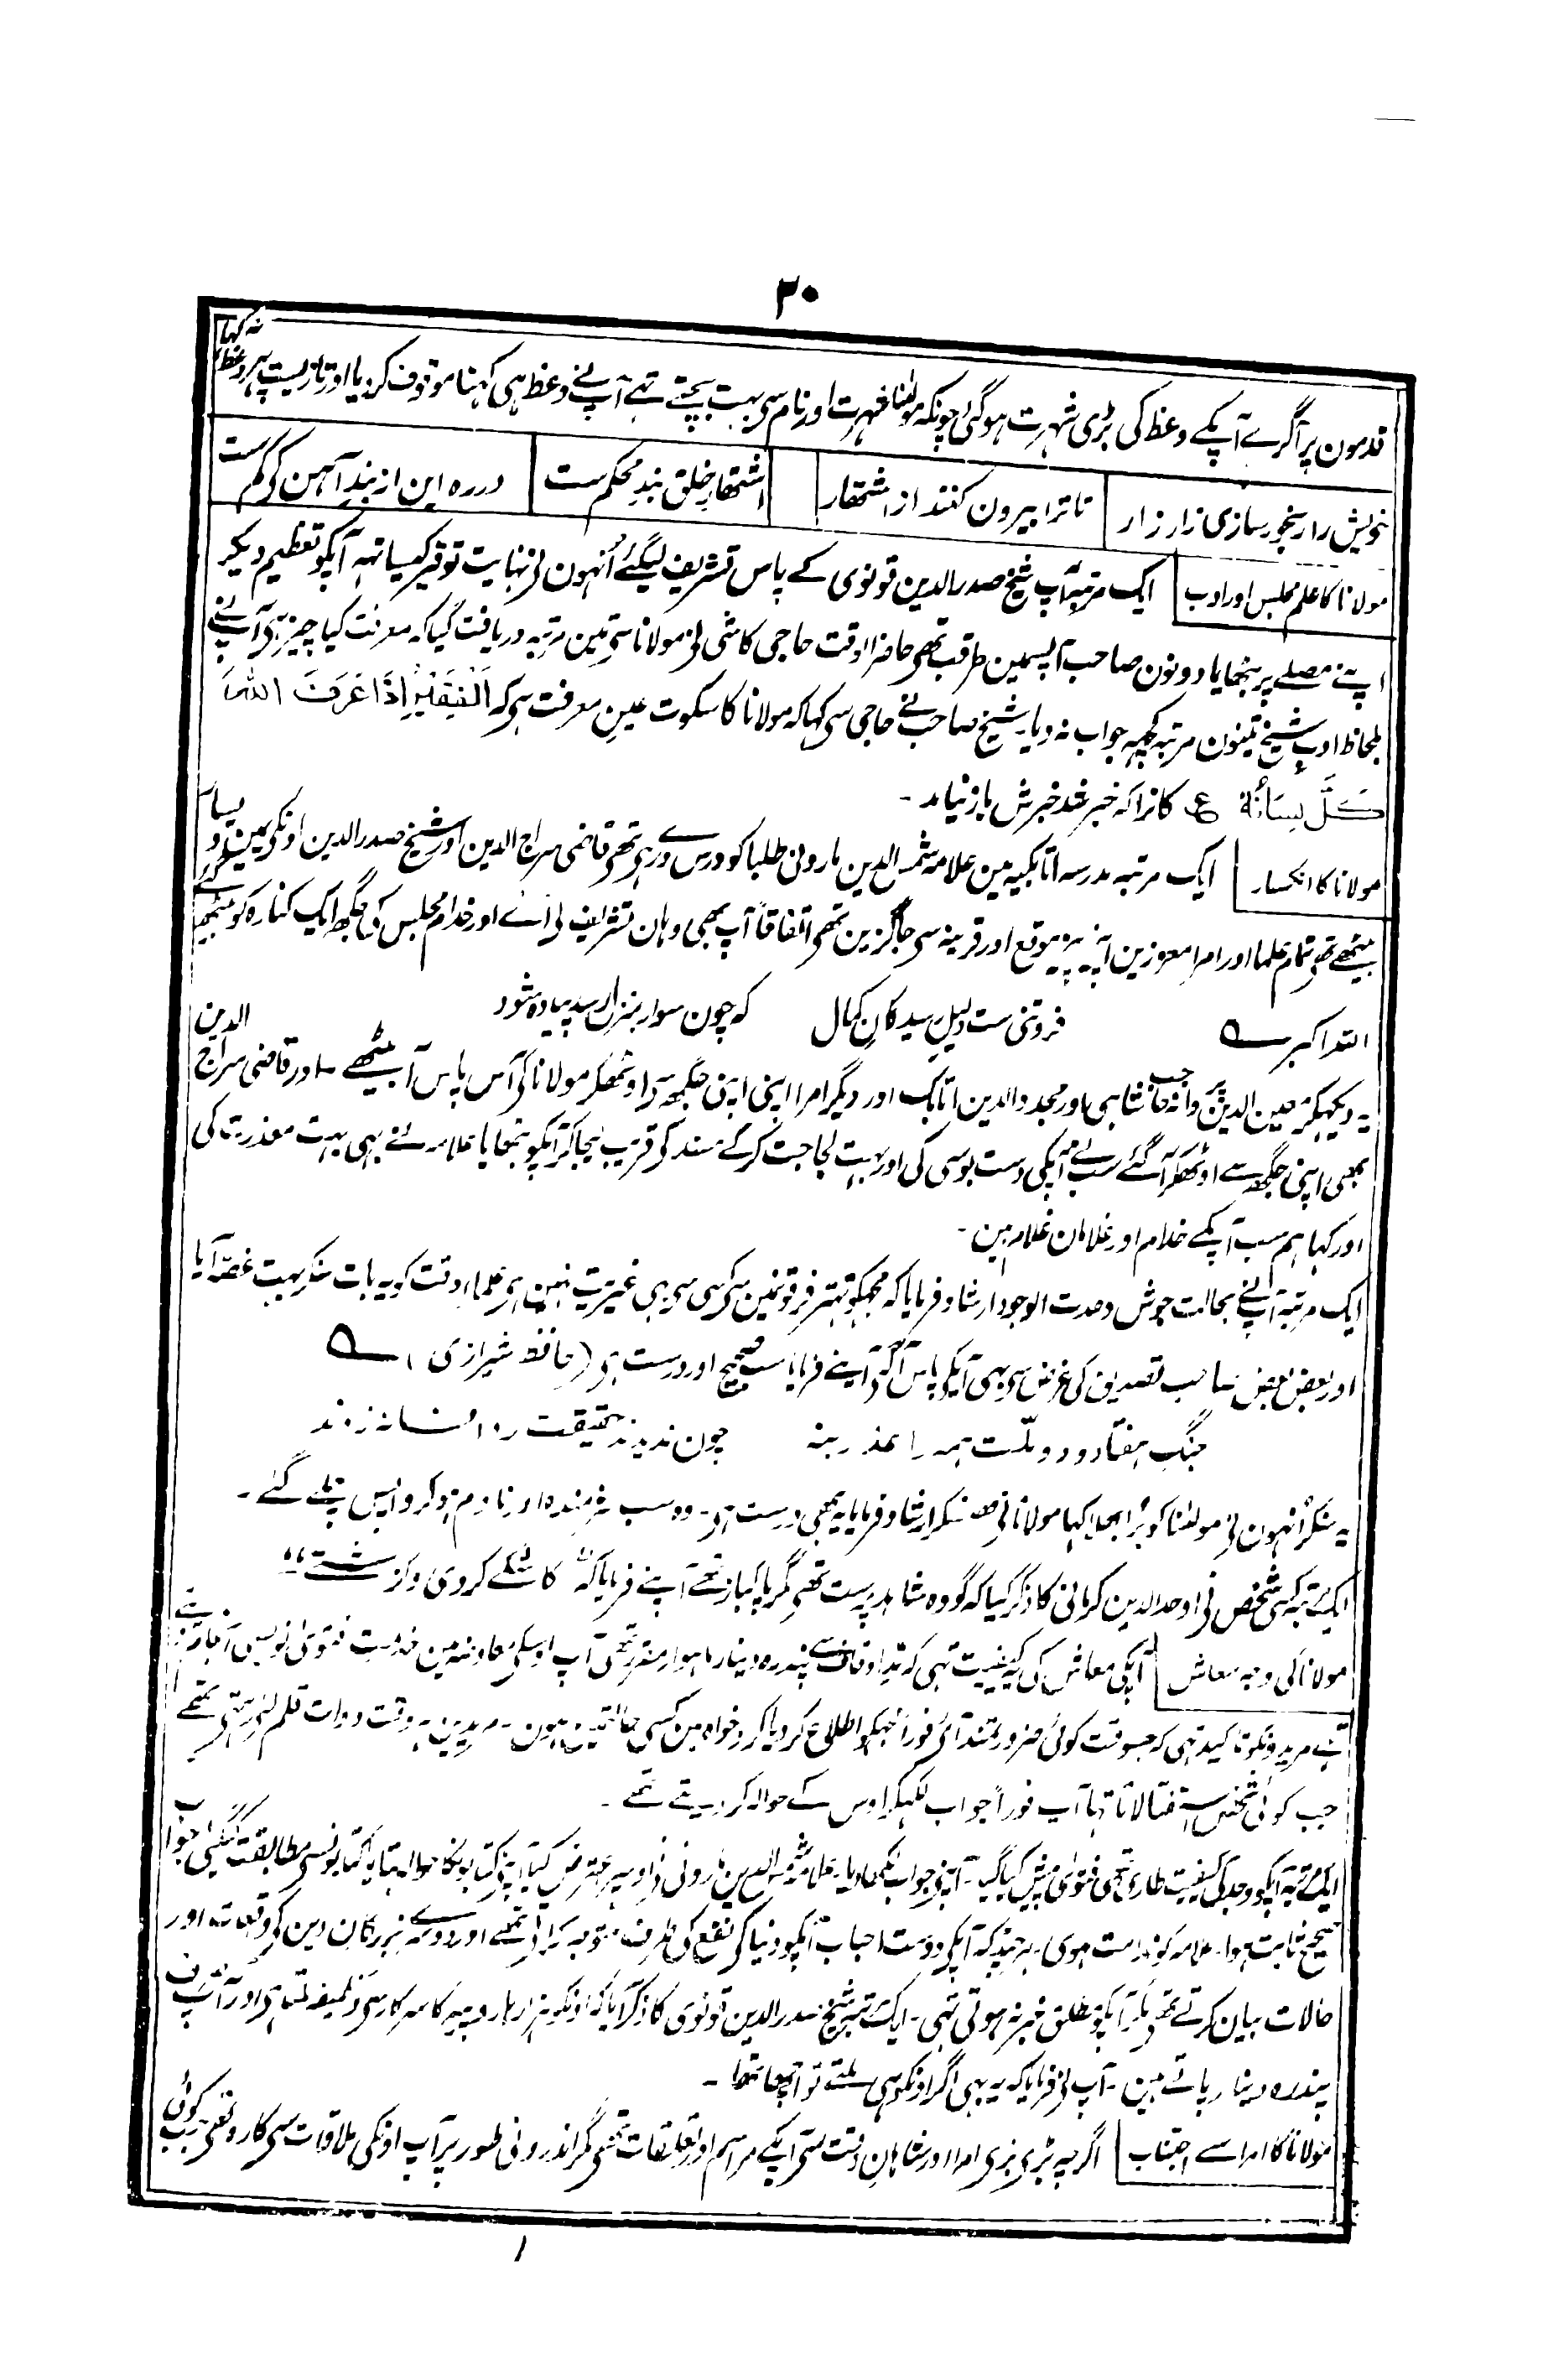 ۳۰
قدمون پر آگرے آپکے وعظ کی بڑی شہرت ہوگئی چونکہ مولٰنا شہرت اور نام سی بہت بچتے تہے آپ نے وعظ ہی کہنا موقوف کردیا اور تازیست پہر وعظ نہ کہا
خویش را رنجور سازی زار زار تا ترا بیرون کنند از اشتہار اشتہار خلق بند محکم ست در رہ این از بند آہن کی کم ست
مولانا کا علم مجلس اور ادب ایک مرتبہ آپ شیخ صدرالدین قونوی کے پاس تشریف لیگئے اُنہون نی نہایت توقیر کیساتہہ آپکو تعظیم دیکر
اپنے مصلے پر بٹھایا دونون صاحب آپسمین مراقب تھی حاضر الوقت حاجی کاشی نی مولانا سی تین مرتبہ دریافت کیا کہ معرفت کیا چیز ہی آپ نے
بلحاظ ادب شیخ تینون مرتبہ کچہہ جواب نہ دیا۔ شیخ صاحب نے حاجی سی کہا کہ مولانا کا سکوت عین معرفت ہی کہ اَلْفَقِیْرُ اِذَا عَرَفَ اللہَ
کَلَّ لِسَانُہٗ ع کانرا کہ خبر شد خبرش باز نیامد ۔
مولانا کا انکسار ایک مرتبہ مدرسہ اتابکیہ مین علامہ شمس الدین ماردینی طلبا کو درس دے رہی تھی قاضی سراج الدین اور شیخ صدرالدین اونکی یمین و یسار
بیٹھے تھی تمام علما اور امرا معززین اپنی اپنی موقع اور قرینہ سی جاگزین تھی اتفاقاً آپ بھی وہان تشریف لی آئے اور خدام مجلس کی جگہہ ایک کنارہ کو بیٹھ گئے
اللہ اکبر فروتنی ست دلیل رسیدگان کمال کہ چون سوار بمنزل رسد پیادہ شود
یہ دیکھکر معین الدین پروانہ حاجب شاہی اور مجد الدین اتابک اور دیگر امرا اپنی اپنی جگہہ سی اوٹھکر مولانا کی آس پاس آ بیٹھے ۔ اور قاضی سراج الدین
بھی اپنی جگہہ سے اوٹھکر آگئے سب نے آپکی دست بوسی کی اور بہت لجاجت کرکے مسند کی قریب لیجا کر آپکو بٹھایا علامہ نے بہی بہت معذرت کی
اور کہا ہم سب آپکے خدام اور غلامان غلام ہین ۔
ایک مرتبہ آپ نے بحالت جوش وحدت الوجود ارشاد فرمایا کہ مجہکو تہتر فرقونمین سی کسی سی بہی غیریت نہین ہی علماء وقت کو یہ بات سنکر بہت غصہ آیا
اور بعض بعض صاحب تصدیق کی غرض سی بہی آپکی پاس آئے آپنے فرمایا سب صحیح اور درست ہی (حافظ شیرازی)
جنگ ہفتاد و دو ملّت ہمہ را عذر بنہ چون ندیدند حقیقت رہ افسانہ زدند
یہ سنکر اُنہون نی مولٰنا کو بُرا بھلا کہا مولانا نی سنکر ارشاد فرمایا یہ بھی درست ہی۔ وہ سب شرمندہ اور نادم ہو کر واپس چلے گئے ۔
ایک مرتبہ کسی شخص نی اوحد الدین کرمانی کا ذکر کیا کہ گو وہ شاہد پرست تھی مگر پاکباز تھے آپنے فرمایا کہ "کاشکے کردی و گزشتے"
مولانا کی وجہ معاش آپکی معاش کی یہ کیفیت تہی کہ مد اوقاف سے پندرہ دینار ماہوار مقرر تھی آپ اوسکی معاوضہ مین خدمت فتوی نویسی
آپنے مریدونکو تاکید تہی کہ جسوقت کوئی ضرورتمند آئی فوراً مجہکو اطلاع کردیا کرو خواہ مین کسی حالتمین ہون۔ مریدین ہر وقت دوات قلم لئے رہتی تھے
جب کوئی شخص استفتا لاتا تہا آپ فوراً جواب لکہکر اوس کے حوالہ کر دیتے تھے ۔
ایک مرتبہ آپکو وجد کی کیفیت طاری تھی فتوی پیش کیا گیا۔ آپنی جواب لکھا دیا۔ علامہ شمس الدین ماردینی نی اوسپر اعتراض کیا آپنی کتابونکا حوالہ بتایا کتابونسی مطابقت کیگئی جواب
صحیح ثابت ہوا۔ علامہ کو ندامت ہوی۔ ہر چند کہ آپکی دوست احباب آپکو دنیا کی نفع کی طرف متوجہ کراتی تھے اور دوسرے بزرگان دین کی وقعات اور
حالات بیان کرتے تھی مگر آپکو مطلق خبر نہ ہوتی تہی۔ ایک مرتبہ شیخ صدرالدین قونوی کا ذکر آیا کہ اونکو ہزارہا روپیہ کا سرکار سی وظیفہ ملتا ہی اور آپ صرف
پندرہ دینار پاتے ہین ۔ آپ نی فرمایا کہ یہ بہی اگر اونکو ہی ملتے تو اچہا تہا ۔
مولانا کا امرا سے اجتناب اگرچہ بڑی بڑی امرا اور شاہان وقت سی آپکے مراسم اور تعلقات تھی مگر اندرونی طور پر آپ اونکی ملاقات سی کارہ تھی۔ جب کوئی